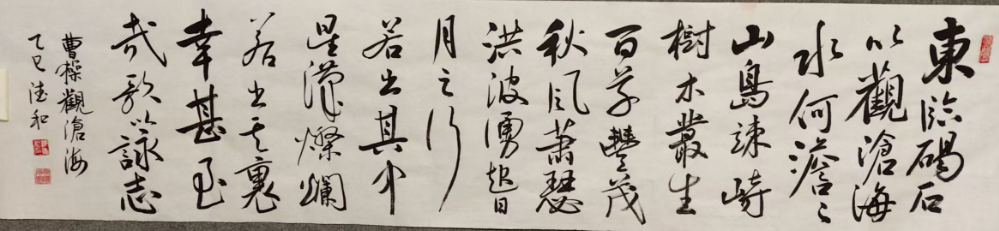 東臨碣石
以觀滄海
水何澹々
山島竦峙
樹木叢生
百草豐茂
秋風蕭瑟
洪波湧起日
月之行
若出其中
星漢燦爛
若出其裏
幸甚至
哉歌以詠志
曹操觀滄海
乙巳 德和